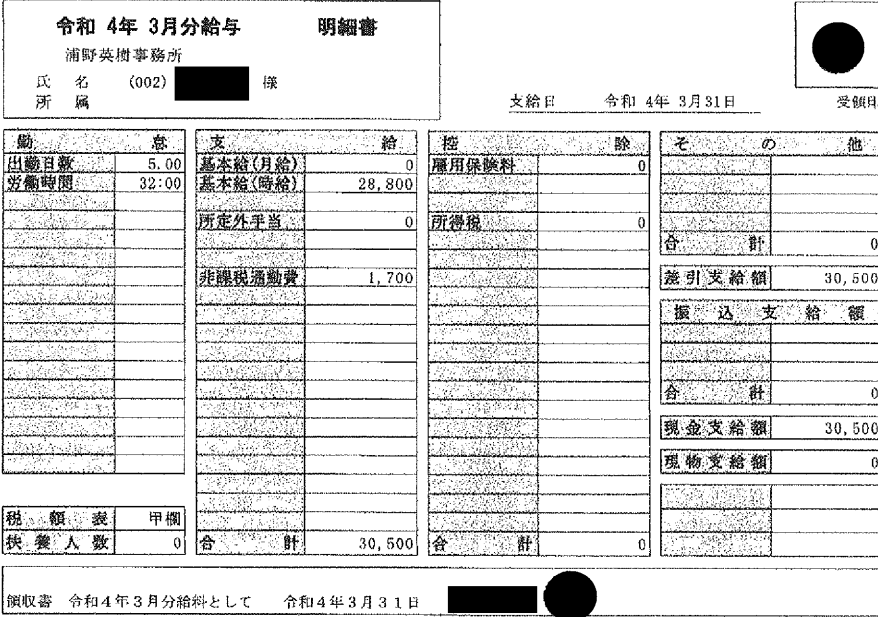 令和 4年 3月分給与 明細書
浦野英樹事務所
氏 名 (002) 様
所 属
支給日 令和 4年 3月31日
受領印
勤 怠
出勤日数 5.00
労働時間 32:00
税 額 表 甲欄
扶養人数 0
支 給
基本給(月給) 0
基本給(時給) 28,800
所定外手当 0
非課税通勤費 1,700
合 計 30,500
控 除
雇用保険料 0
所得税 0
合 計 0
そ の 他
合 計 0
差引支給額 30,500
振 込 支 給 額
合 計 0
現金支給額 30,500
現物支給額 0
領収書 令和4年3月分給料として 令和4年3月31日